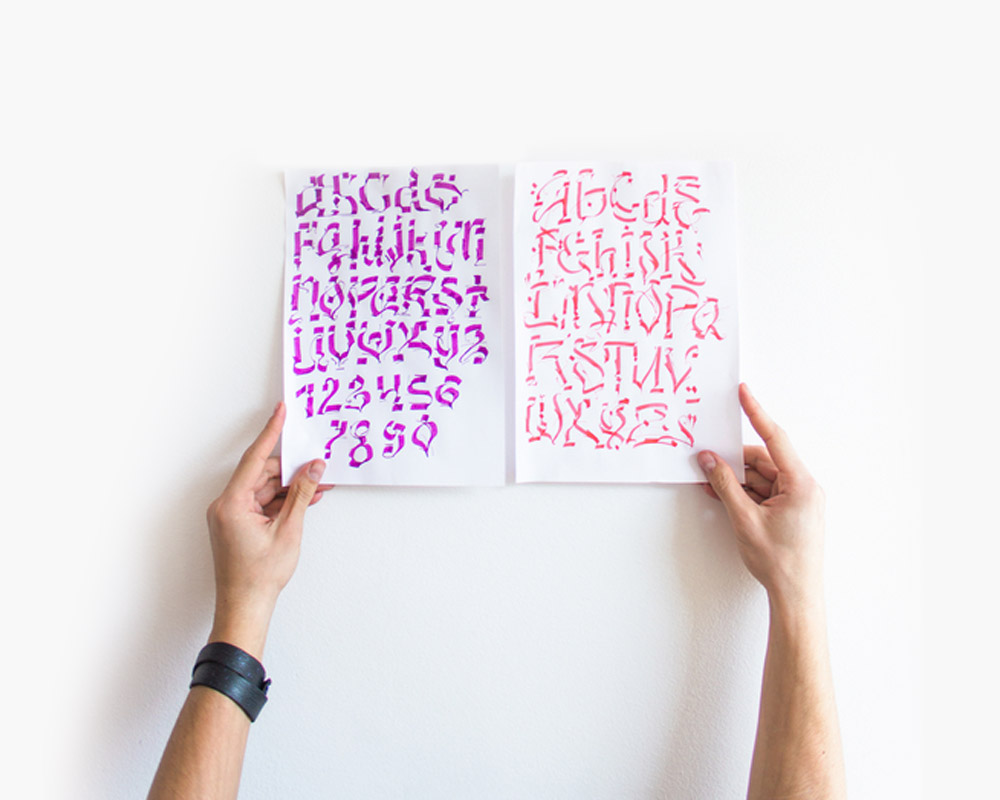 abcde
Fghijklm
nopqrst
uvwxyz
123456
7890
abcde
Fghijk
LmnOPQ
RSTUV
WXYZ